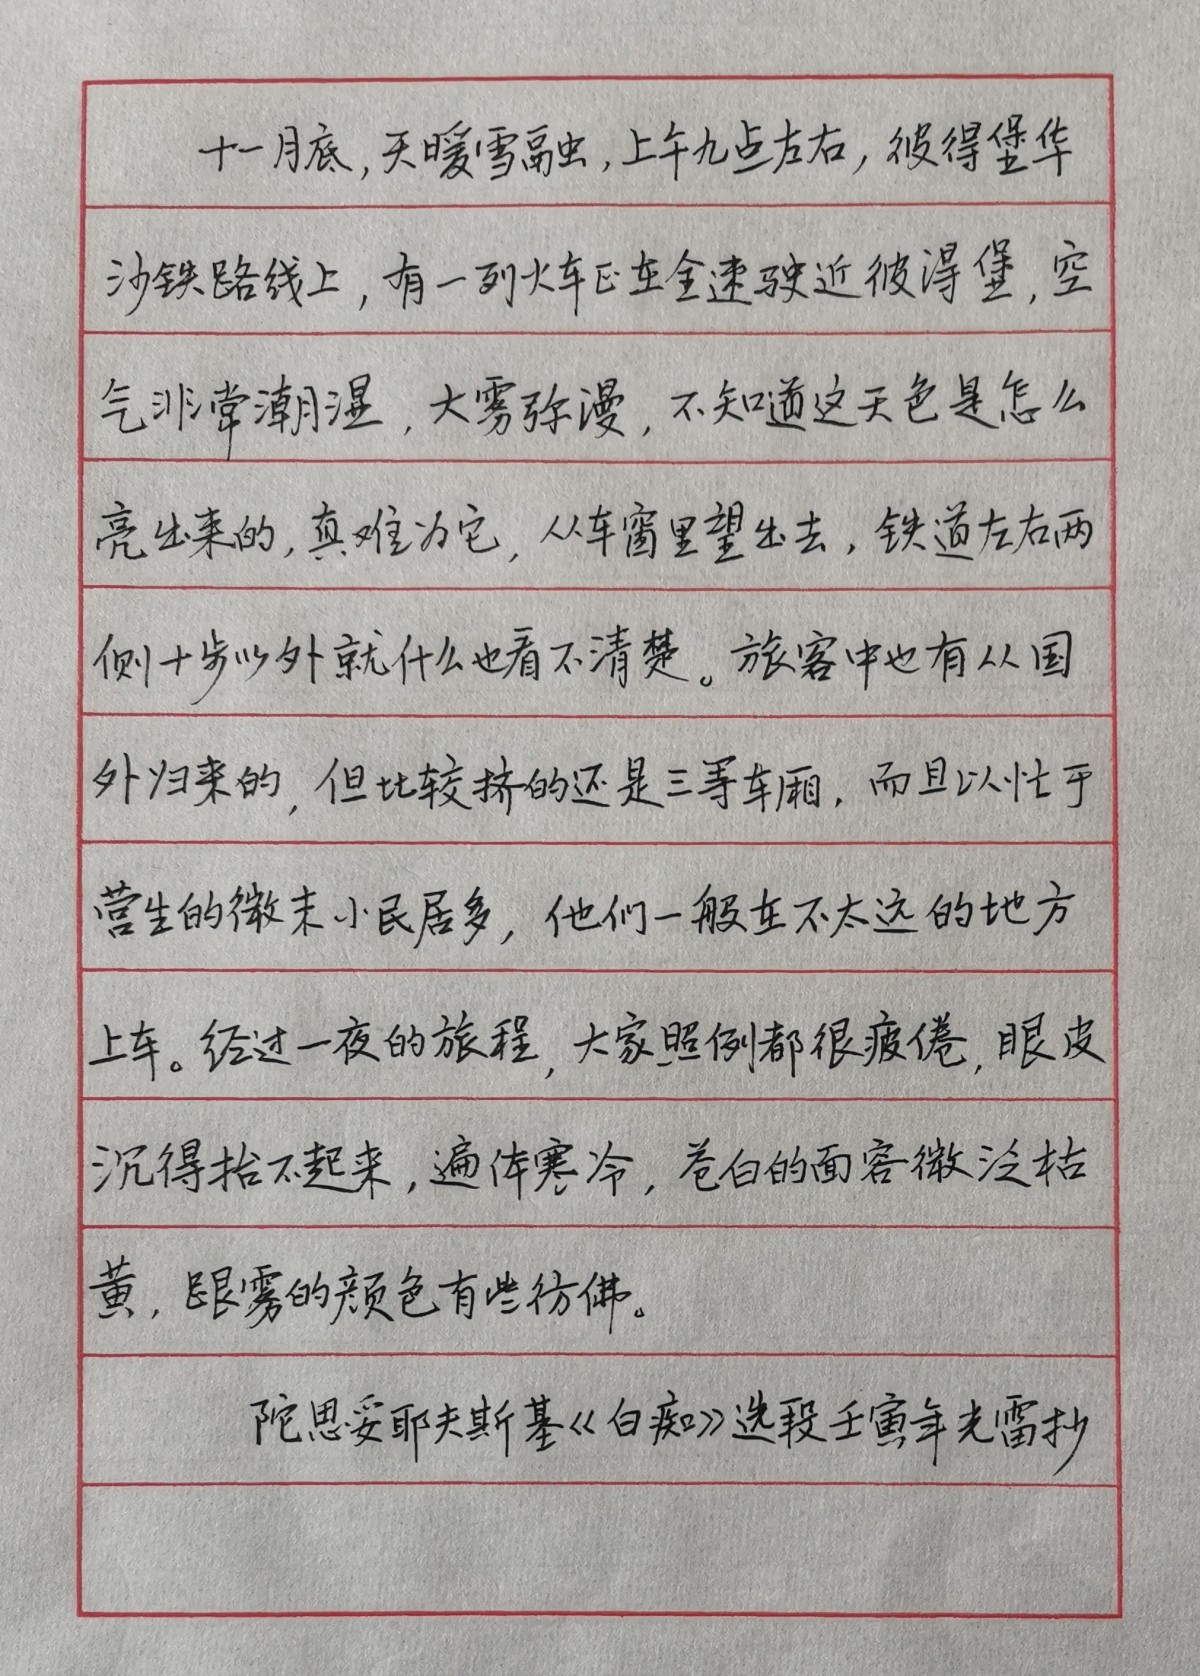 十一月底,天暖雪融,上午九点左右,彼得堡华
沙铁路线上,有一列火车正在全速驶近彼得堡,空
气非常潮湿,大雾弥漫,不知道这天色是怎么
亮出来的,真难为它,从车窗里望出去,铁道左右两
侧十步以外就什么也看不清楚。旅客中也有从国
外归来的,但比较挤的还是三等车厢,而且以忙于
营生的微末小民居多,他们一般在不太远的地方
上车。经过一夜的旅程,大家照例都很疲倦,眼皮
沉得抬不起来,遍体寒冷,苍白的面容微泛枯
黄,跟雾的颜色有些彷佛。
陀思妥耶夫斯基《白痴》选段壬寅年光雷抄